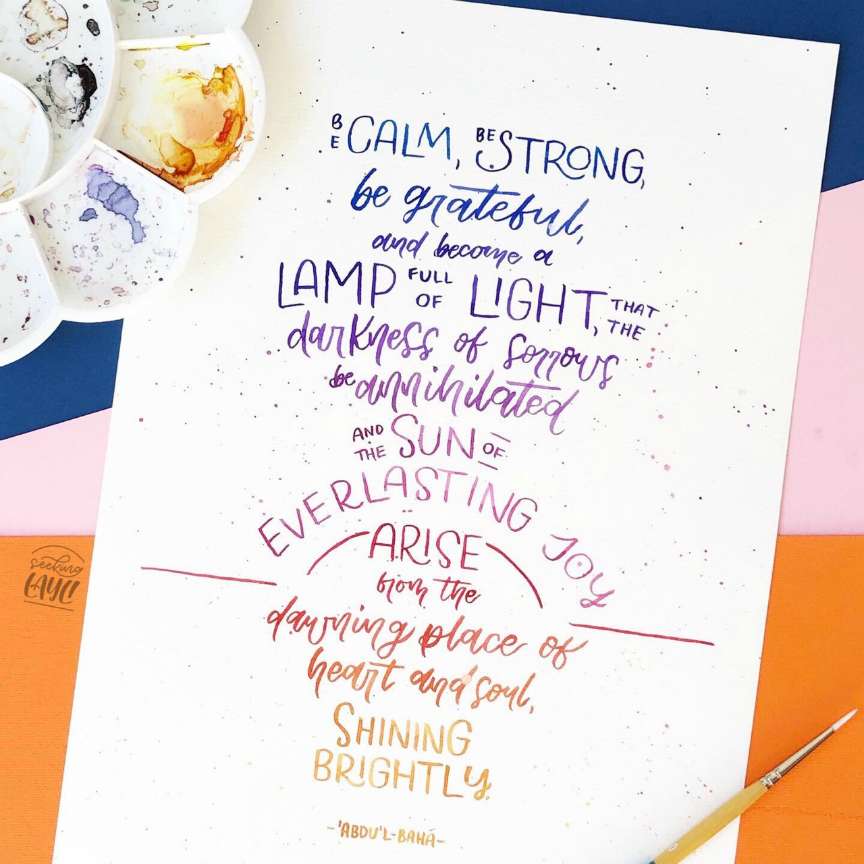 BE CALM, BE STRONG,
be grateful,
and become a
LAMP FULL OF LIGHT, THAT THE
darkness of sorrows
be annihilated
AND THE SUN OF
EVERLASTING JOY
ARISE
from the
dawning place of
heart and soul,
SHINING
BRIGHTLY.
-'ABDU'L-BAHÁ-
seeking